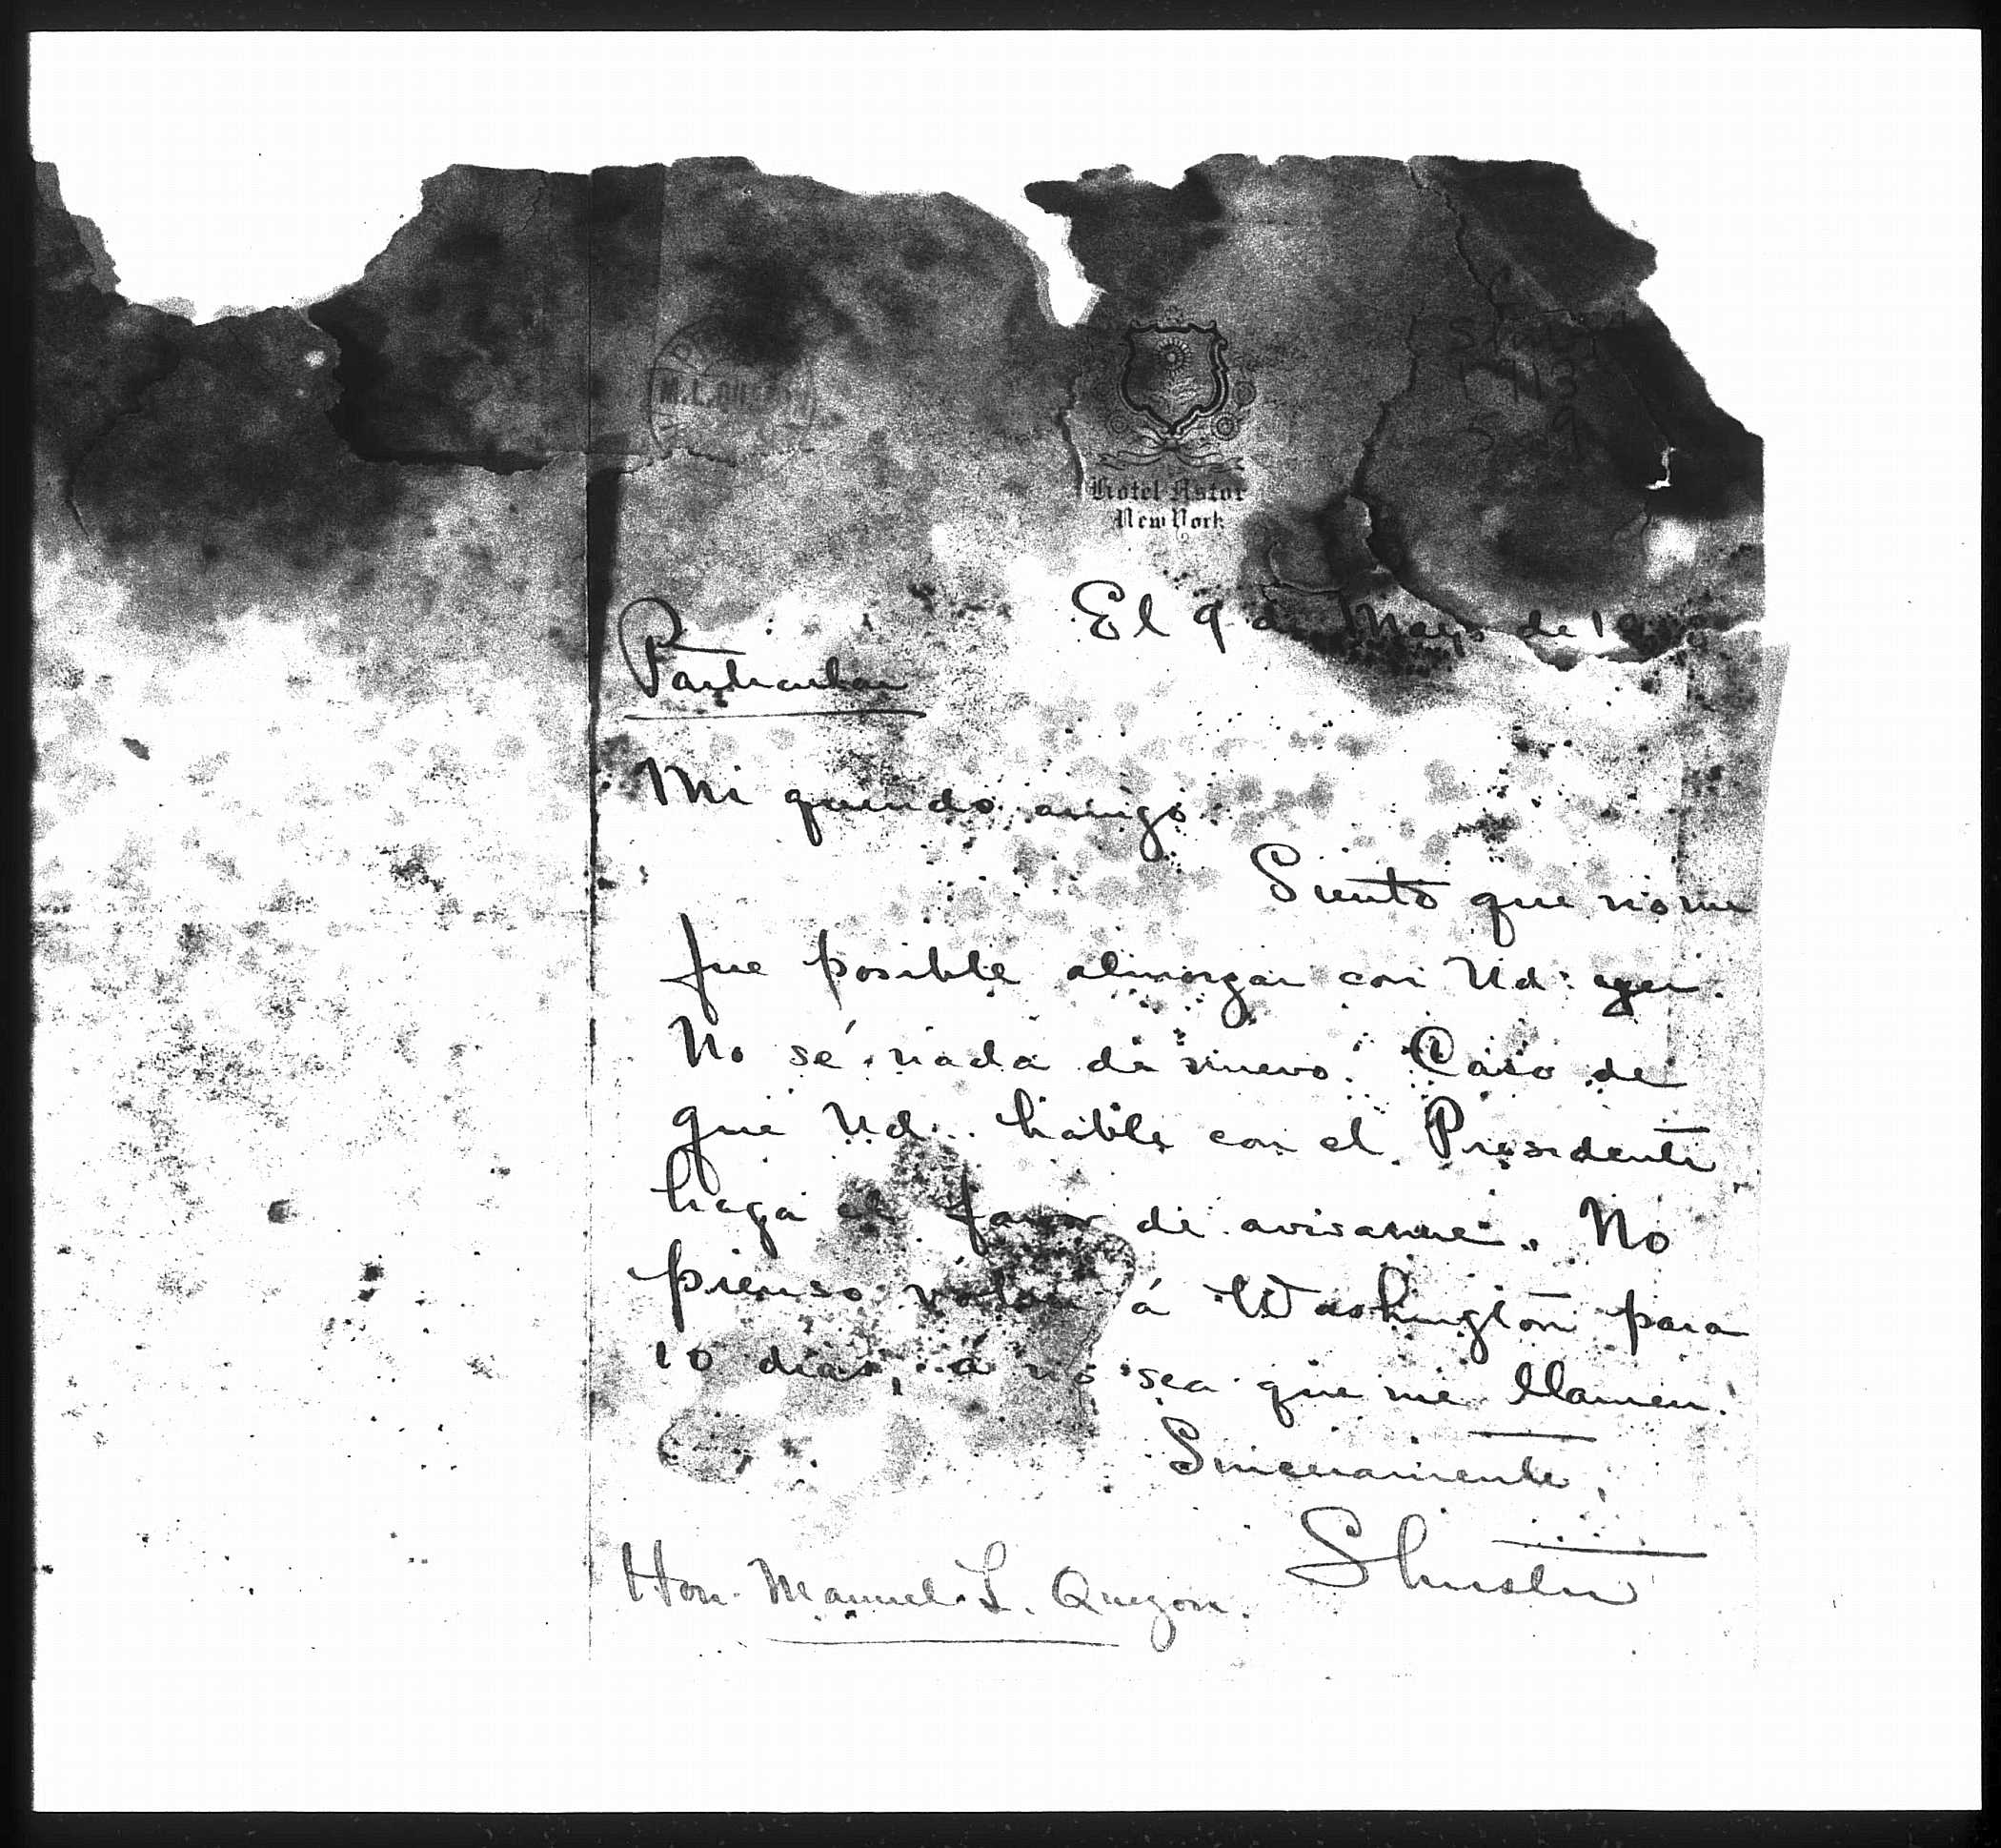 M.L. QUEZON
Hotel Astor
New York
El 9 de Mayo de 19
Particular
Mi querido amigo
Siento que no me
fue posible almorzar con Ud. ayer.
No sé nada de nuevo. Caso de
que Ud. hable con el Presidente
haga el favor de avisarme. No
pienso volver á Washington para
10 dias, á no sea que me llamen.
Sinceramente,
Shuster
Hon. Manuel L. Quezon.